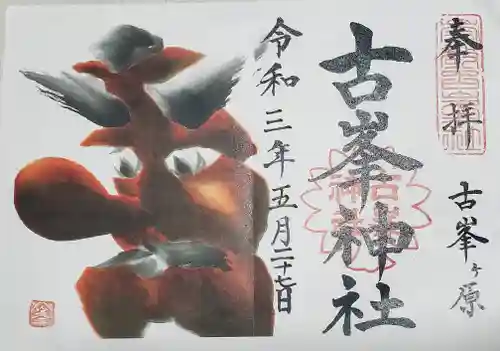 奉拝
古峯ヶ原
古峯神社
令和三年五月二十七日